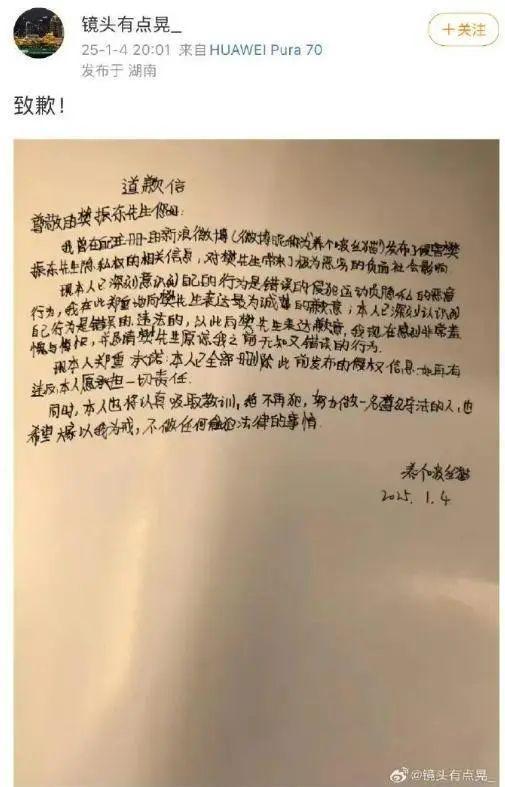 镜头有点晃_
+关注
25-1-4 20:01 来自 HUAWEI Pura 70
发布于 湖南
致歉！
道歉信
尊敬的樊振东先生你好:
我曾在配注册的新浪微博(微博昵称为养个波丝猫)发布了侵害樊
振东先生隐私权的相关信息，对樊先生带来了极为恶劣的负面社会影响
现本人已深刻意识到自己的行为是错误的侵犯运动员隐私的恶意
行为，我在此郑重地向樊先生表达最为诚挚的歉意；本人已深刻认识到
自己行为是错误的、违法的，以此向樊先生表达歉意，我现在感到非常羞
愧与悔恨，并恳请樊先生原谅我之前无知又错误的行为.
现本人郑重承诺:本人已全部删除此前发布的侵权信息.如再有
违反,本人愿承担一切责任.
同时，本人也将认真吸取教训，绝不再犯，努力做一名遵纪守法的人，也
希望大家以我为戒，不做任何触犯法律的事情.
养个波丝猫
2025. 1. 4
@镜头有点晃_